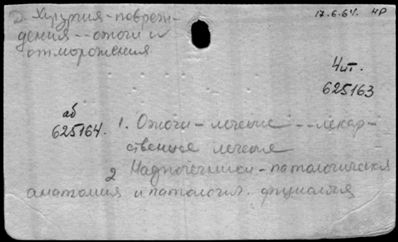 2 Хирургия - повреж-
дения - ожоги и
отморожения
17.6.64. НР
Чит.
625163
аб
625164. 1. Ожоги - лечение - - лекар-
ственное лечение
2 Надпочечники - патологическая
анатомия и патология. физиология